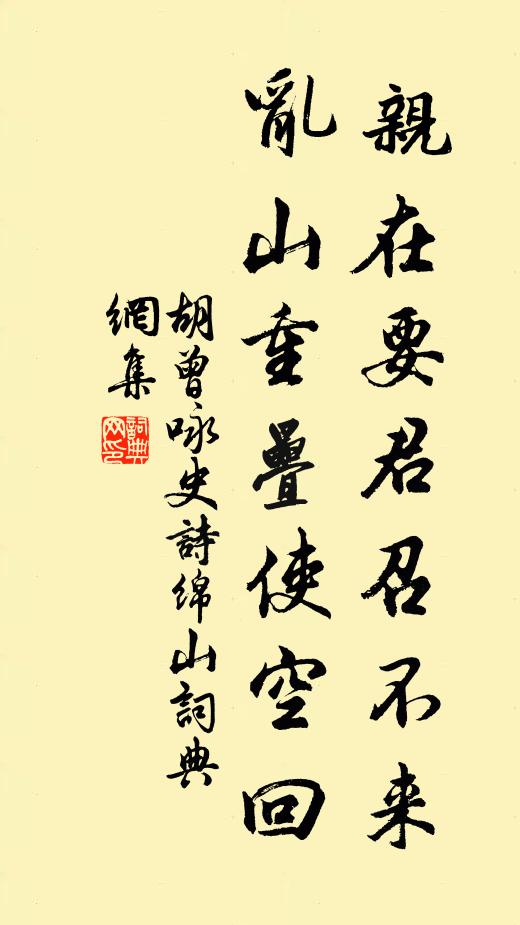 親在要君召不来
亂山重疊使空回
胡曾咏史詩绵山詞典
網集
詞典
网印